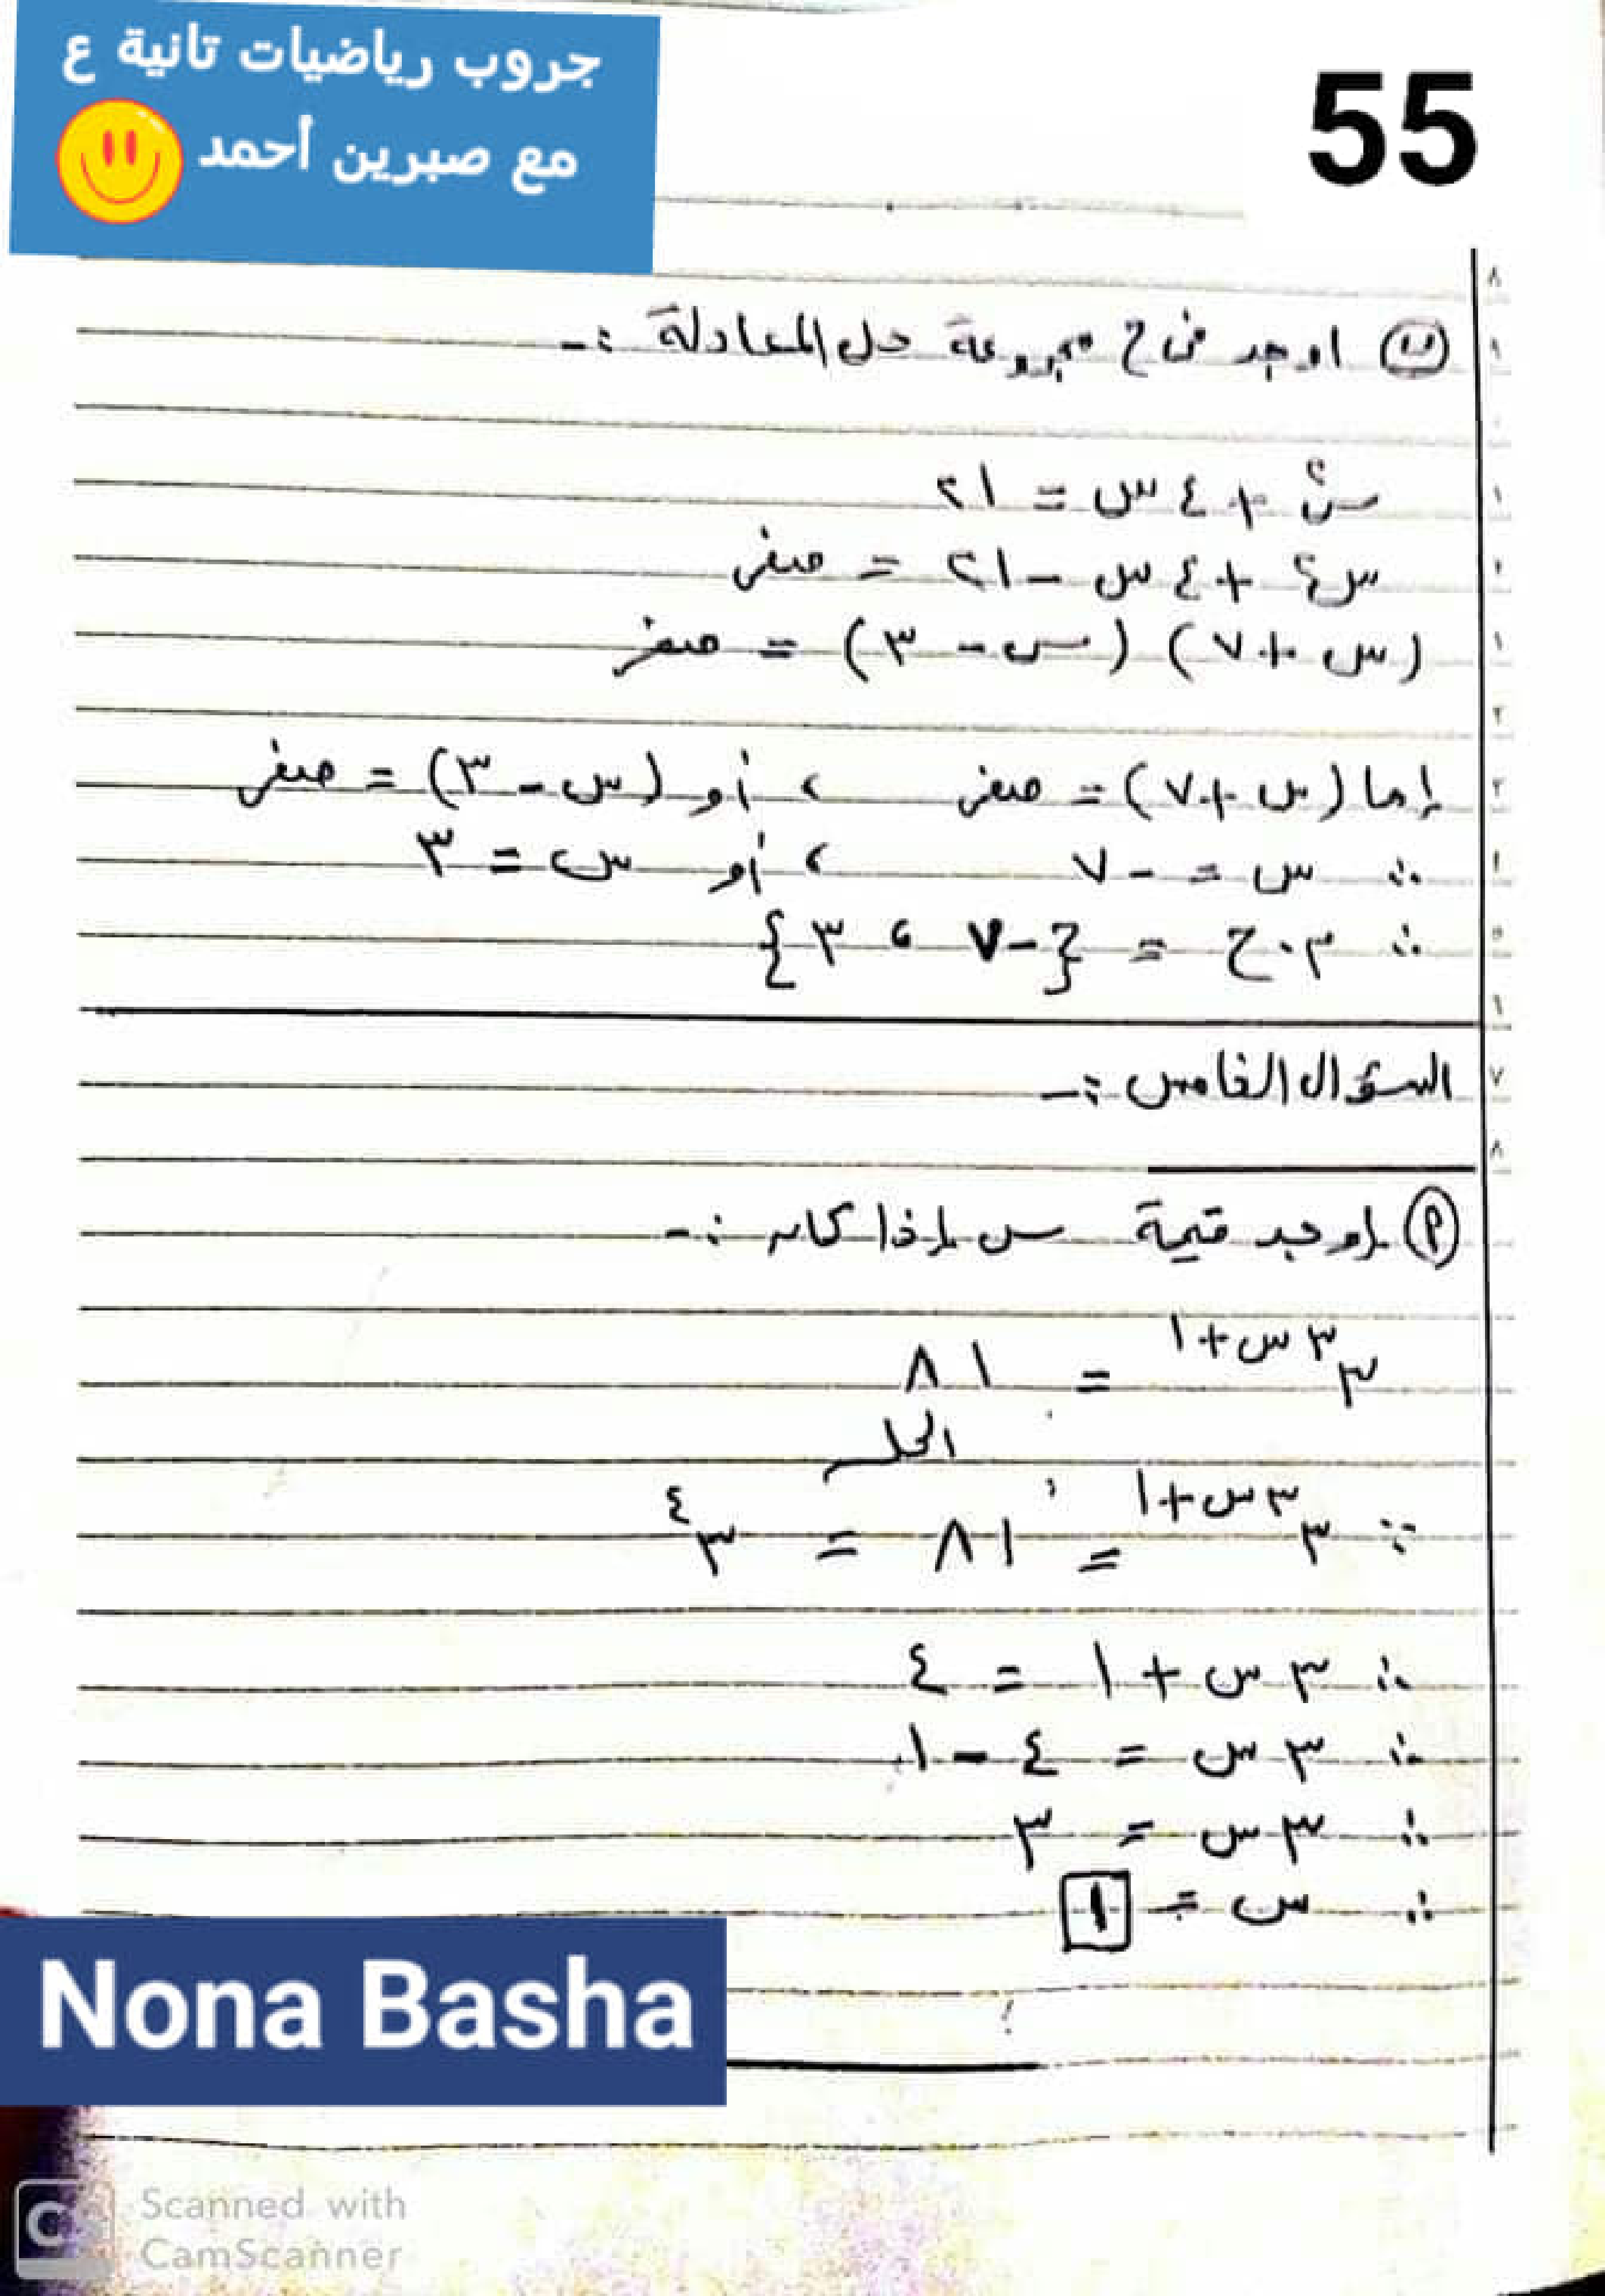 جروب رياضيات تانية ع
مع صبرين أحمد
55
ب اوجد فى ح مجموعة حل المعادلة :-
س٢ + ٤ س = ٢١
س٢ + ٤ س - ٢١ = صفر
(س + ٧) (س - ٣) = صفر
إما (س + ٧) = صفر ، أو (س - ٣) = صفر
∴ س = - ٧ ، أو س = ٣
∴ م . ح = {- ٧ ، ٣}
السؤال الخامس :-
أ اوجد قيمة س إذا كان :-
٣^(٣س+١) = ٨١
الحل
∵ ٣^(٣س+١) = ٨١ = ٣^٤
∴ ٣ س + ١ = ٤
∴ ٣ س = ٤ - ١
∴ ٣ س = ٣
∴ س = ١
Nona Basha
CS
Scanned with
CamScanner